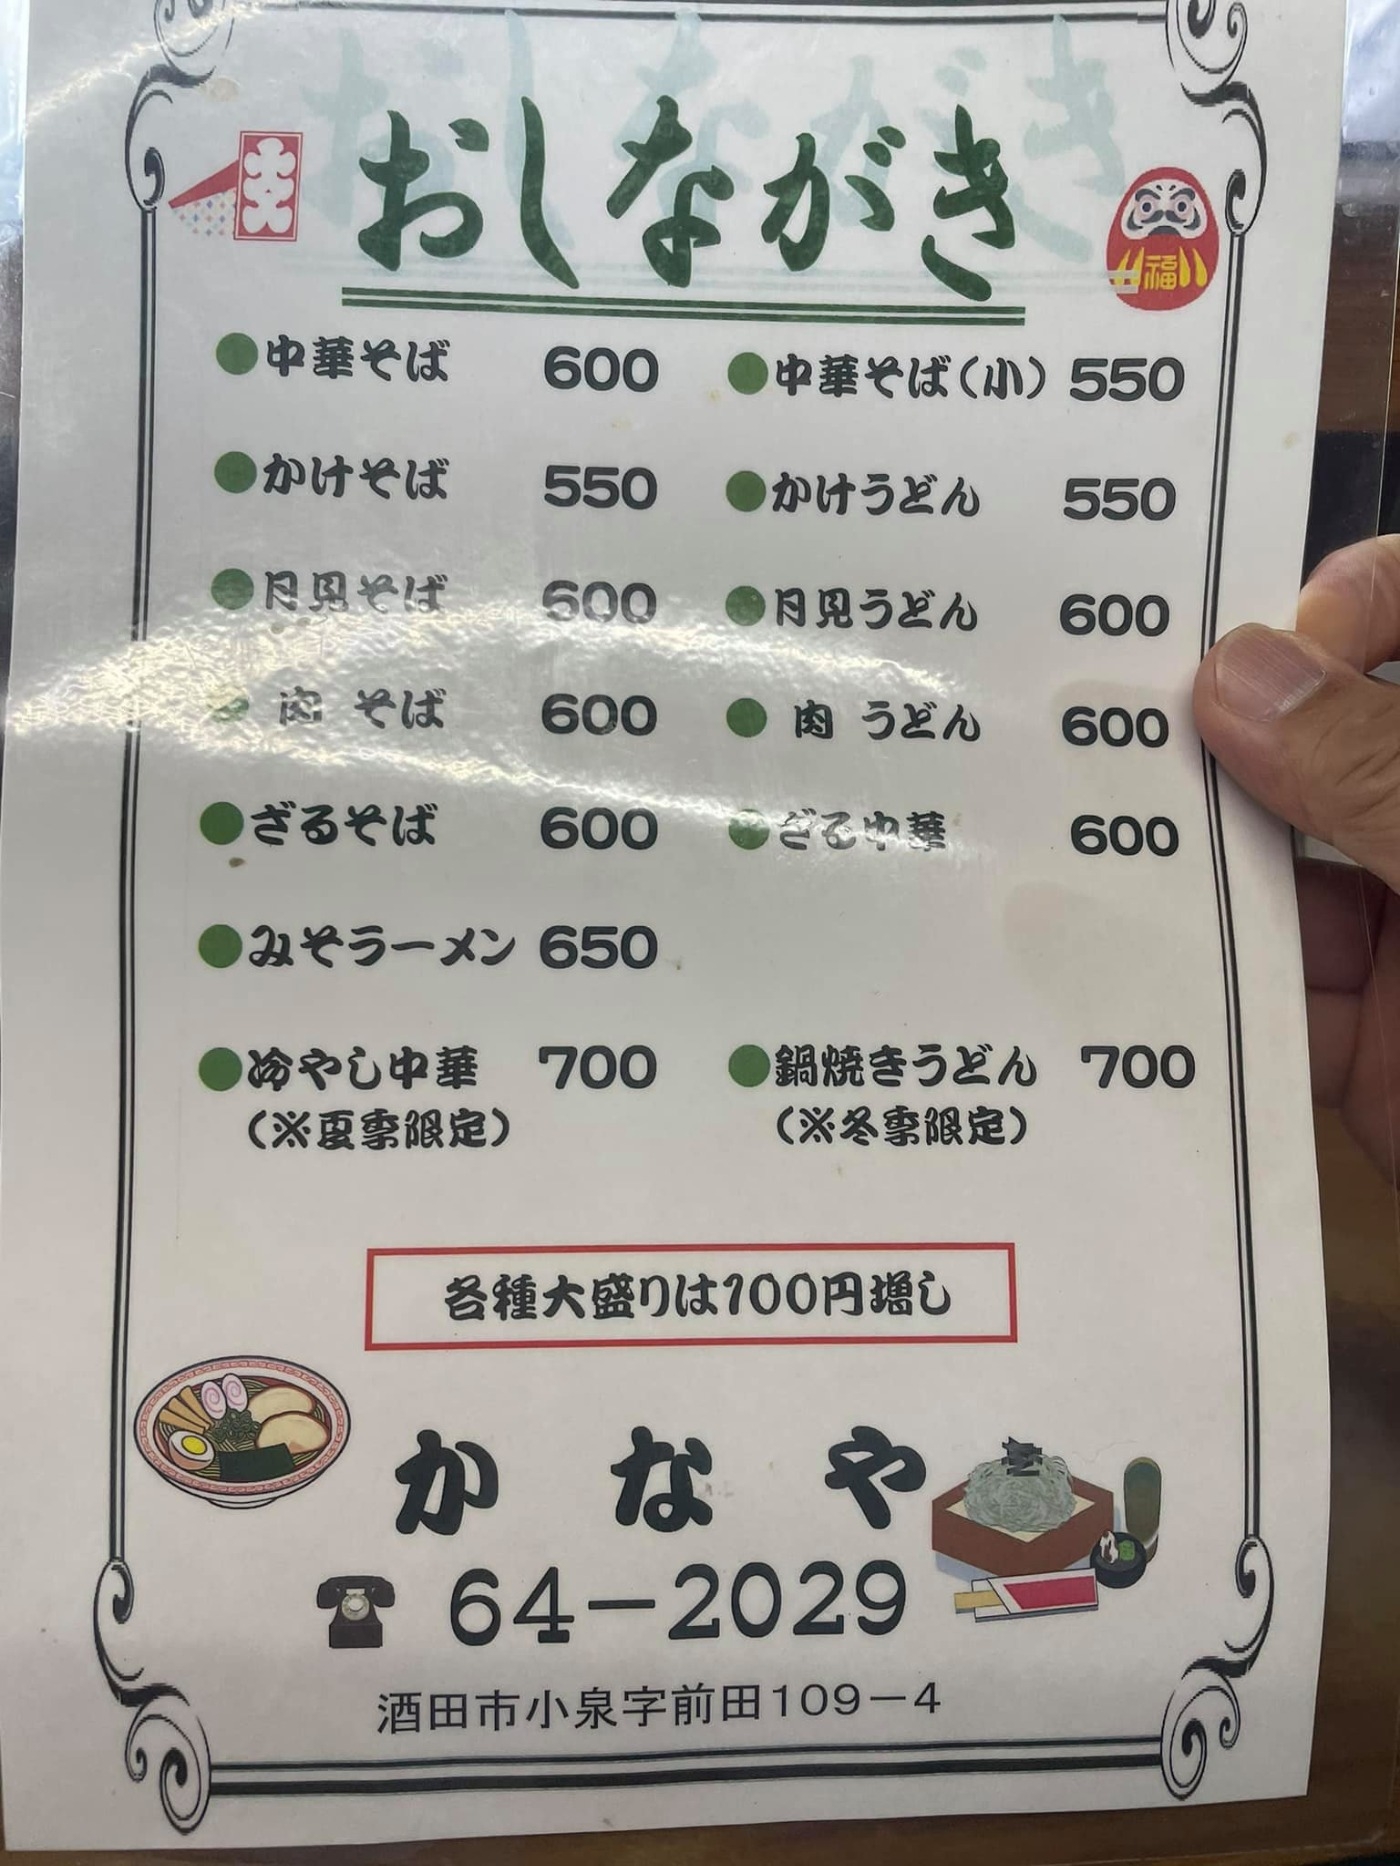 大入
おしながき
福
●中華そば 600 ●中華そば(小) 550
●かけそば 550 ●かけうどん 550
●月見そば 600 ●月見うどん 600
●肉そば 600 ●肉うどん 600
●ざるそば 600 ●ざる中華 600
●みそラーメン 650
●冷やし中華 700 ●鍋焼きうどん 700
(※夏季限定) (※冬季限定)
各種大盛りは100円増し
かなや
☎ 64-2029
酒田市小泉字前田109-4